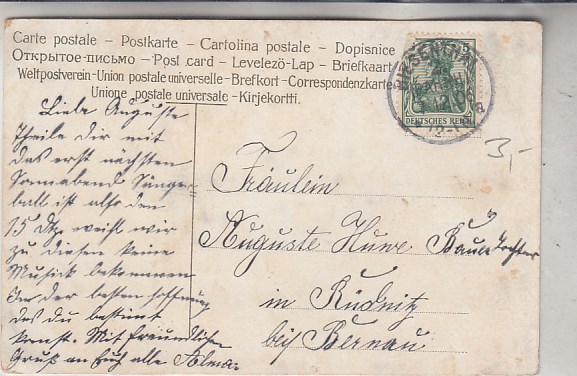 Carte postale – Postkarte – Cartolina postale – Dopisnice
Открытое-письмо – Post card – Levelező-Lap – Briefkaart
Weltpostverein-Union postale universelle-Brefkort-Correspondenzkarte
Unione postale universale-Kirjekortti.
BIESENTHAL
DEUTSCHES REICH
5
3,-
Liebe Auguste
Theile dir mit
das erst nächsten
Sonnabend Sänger-
ball ist also den
15 Dtz. weihl wir
zu diesen keine
Musick bekommen
In der besten hoffnung
das du bestimt
komst. Mit freundlichen
Gruß an Euch alle Alma.
Fräulein
Auguste Huwe Bauerntochter
in Rüdnitz
bei Bernau